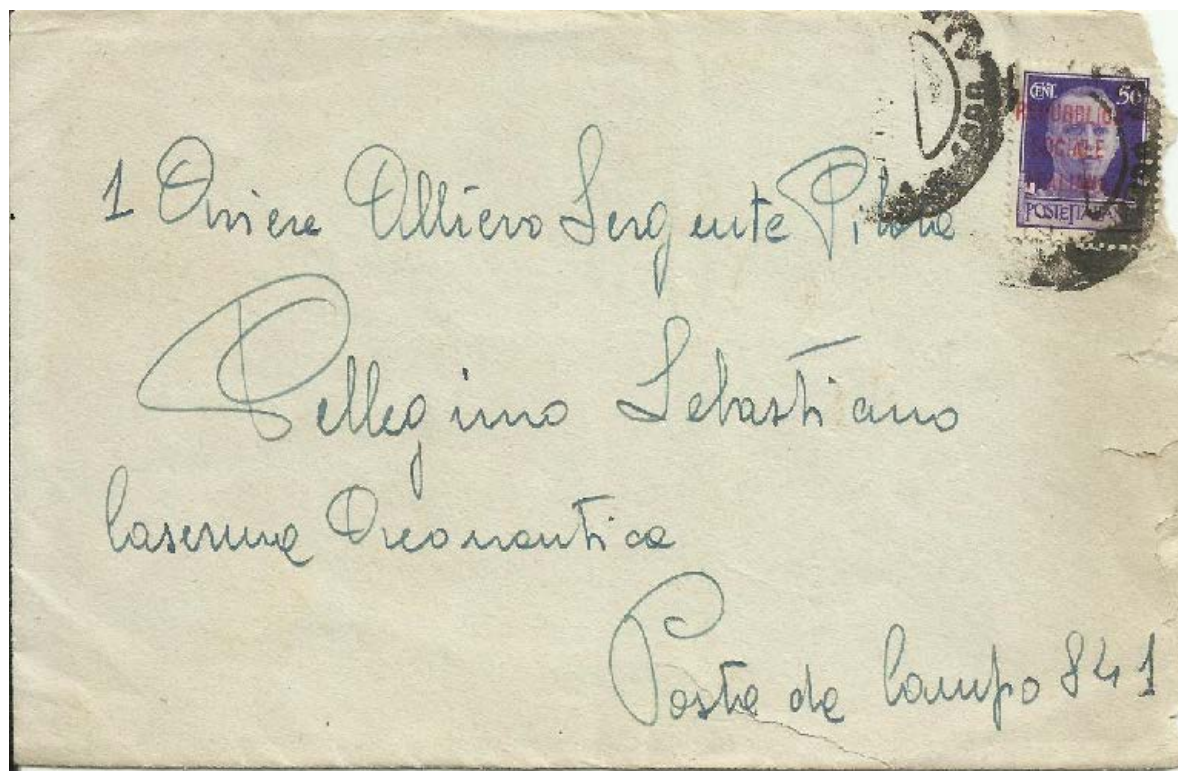 CENT. 50
REPUBBLICA
SOCIALE
POSTE ITALIANE
1 Aviere Allievo Sergente Pilota
Pellegrino Sebastiano
Caserma Areonautica
Posta da Campo 841